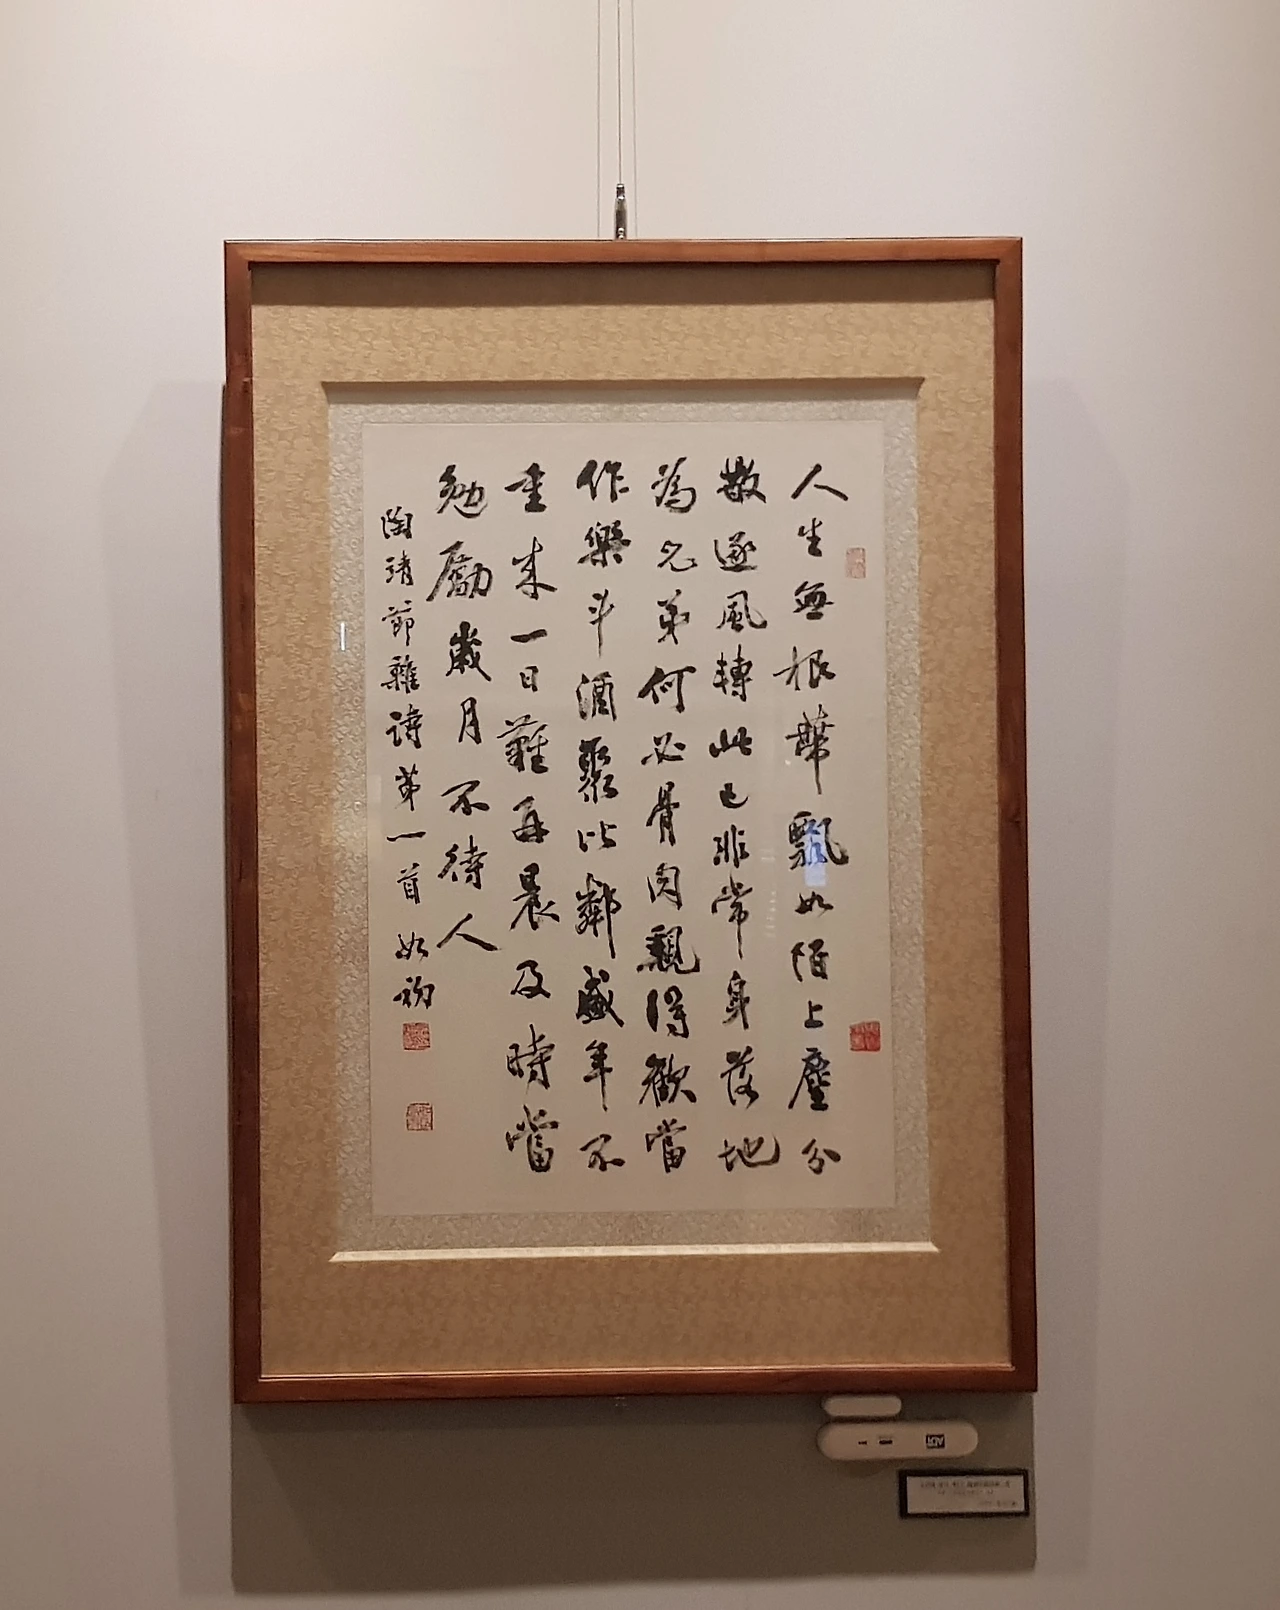 人生無根蔕飄如陌上塵分
散逐風轉此已非常身落地
為兄弟何必骨肉親得歡當
作樂斗酒聚比鄰盛年不
重來一日難再晨及時當
勉勵歲月不待人
陶靖節雜詩第一首 如初
ADT